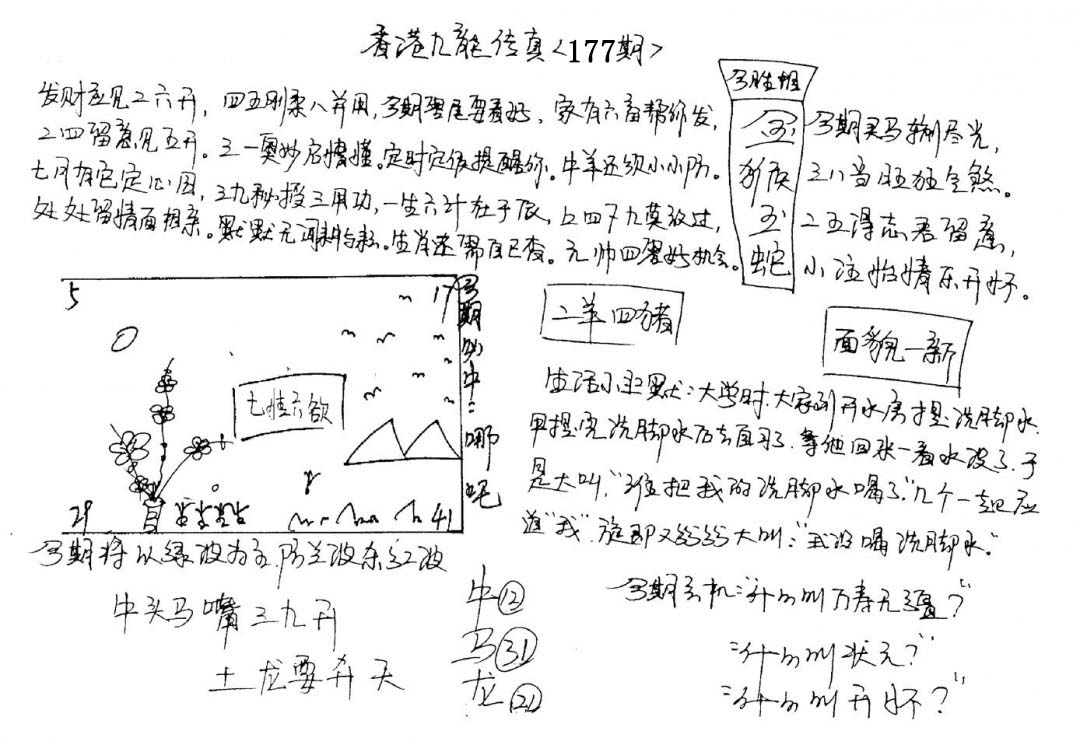 香港九龍传真<177期>
今肖组
发财应见二六开，四五刚柔八并用，今期要看好，家有六畜帮你发，
二四留意见五开。三一奥妙启懵懂。定时定位提醒你。牛羊还须小小防。
七月有它定心用，三九秘授三用功，一生六计在于辰，上四下九莫放过，
处处留情面相亲。默默无词。生肖还需自己查。元帅四碧好机会。
金
猴
玉
蛇
今期灵马尽光，
三八当旺狂金煞。
二五得志君留意，
小注怡情乐开怀。
5
17
29
41
七情六欲
今期必中：哪吒
二羊四猪
面貌一新
生活小幽默：大学时，大家到开水房提洗脚水，
甲提完洗脚水后去自习了，等他回来一看水没了，于
是大叫，“谁把我的洗脚水喝了”几个一起应
道“我”，旋即又纷纷大叫：“我没喝洗脚水。”
今期将以绿波为主，防兰波杀红波
牛头马嘴三九开
土龙要升天
牛⑫
马㉛
龙㉑
今期玄机：“什么叫万寿无疆？”
“什么叫状元？”
“什么叫开怀？”